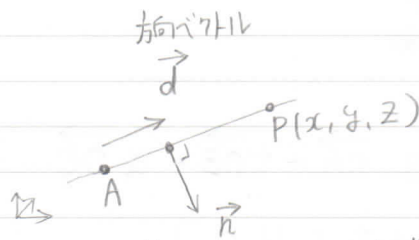 方向ベクトル
d
P(x, y, z)
A
n